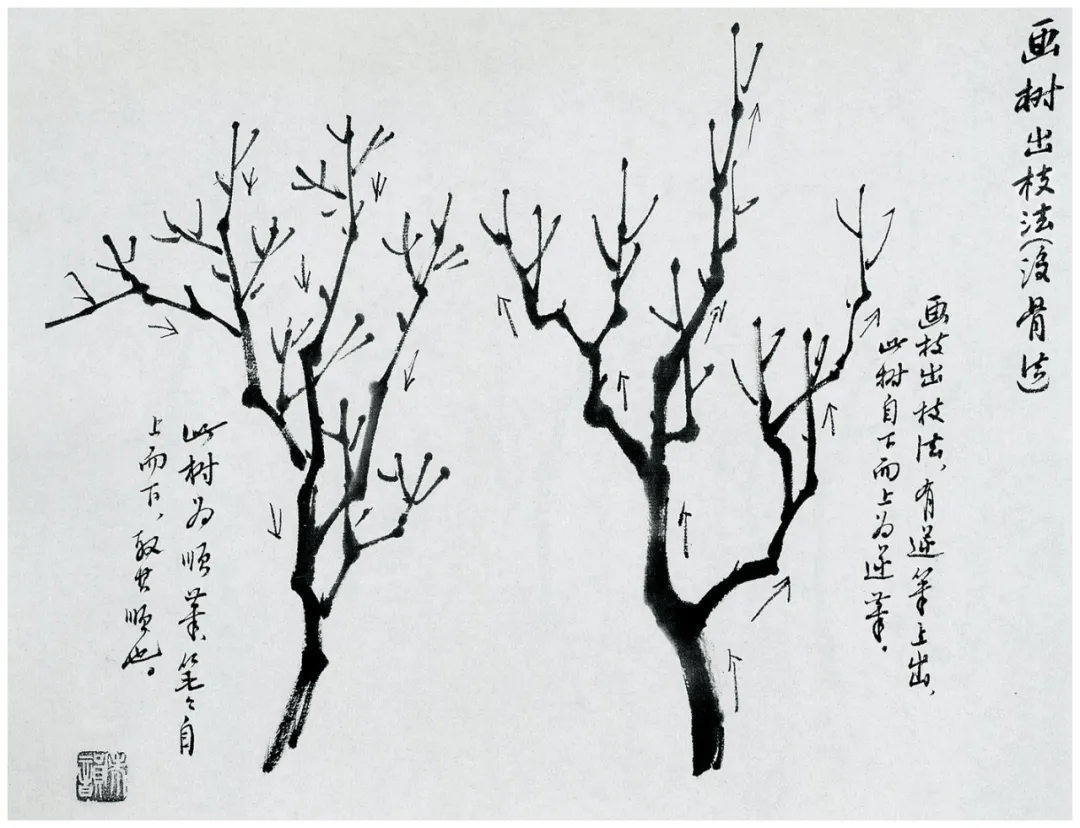 画树出枝法(没骨法)
画枝出枝法，有逆笔上出，
此树自下而上为逆笔。
此树为顺笔，笔笔自
上而下，取其顺也。